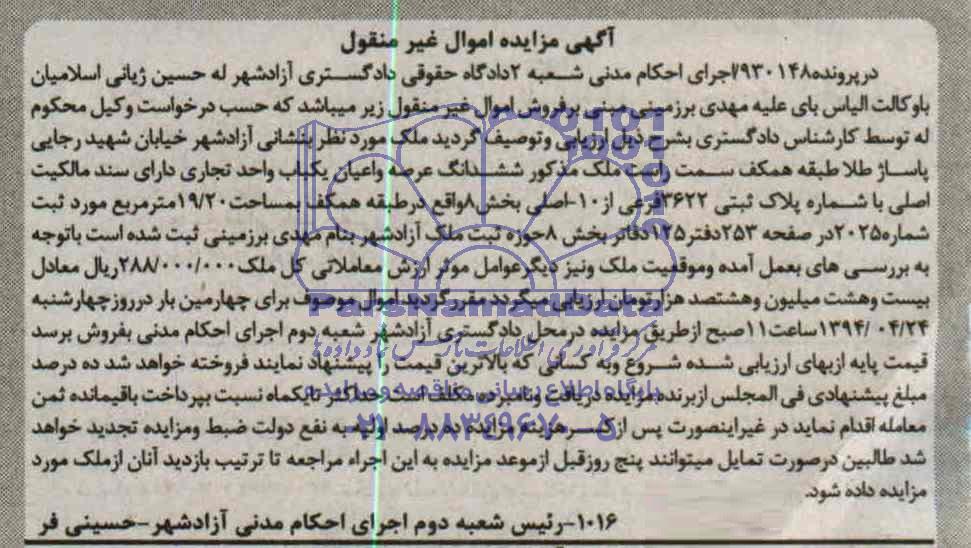 آگهی مزایده اموال غیر منقول
درپرونده۹۳۰۱۴۸/اجرای احکام مدنی شعبه ۲دادگاه حقوقی دادگستری آزادشهر له حسین ژیانی اسلامیان
باوکالت الیاس بای علیه مهدی برزمینی مبنی برفروش اموال غیر منقول زیر میباشد که حسب درخواست وکیل محکوم
له توسط کارشناس دادگستری بشرح ذیل ارزیابی وتوصیف گردید ملک مورد نظر بنشانی آزادشهر خیابان شهید رجایی
پاساژ طلا طبقه همکف سمت راست ملک مذکور ششدانگ عرصه واعیان یکباب واحد تجاری دارای سند مالکیت
اصلی با شماره پلاک ثبتی ۳۶۲۲فرعی از۱۰-اصلی بخش۸واقع درطبقه همکف بمساحت۱۹/۲۰مترمربع مورد ثبت
شماره۲۰۲۵در صفحه ۲۵۳دفتر۱۲۵دفاتر بخش ۸حوزه ثبت ملک آزادشهر بنام مهدی برزمینی ثبت شده است باتوجه
به بررسی های بعمل آمده وموقعیت ملک ونیز دیگرعوامل موثر ارزش معاملاتی کل ملک۲۸۸/۰۰۰/۰۰۰ریال معادل
بیست وهشت میلیون وهشتصد هزارتومان ارزیابی میگردد مقرر گردید اموال موصوف برای چهارمین بار درروزچهارشنبه
۱۳۹۴/۰۴/۲۴ساعت۱۱صبح ازطریق مزایده درمحل دادگستری آزادشهر شعبه دوم اجرای احکام مدنی بفروش برسد
قیمت پایه ازبهای ارزیابی شده شروع وبه کسانی که بالاترین قیمت را پیشنهاد نمایند فروخته خواهد شد ده درصد
مبلغ پیشنهادی فی المجلس ازبرنده مزایده دریافت ونامبرده مکلف است حداکثر تایکماه نسبت بپرداخت باقیمانده ثمن
معامله اقدام نماید در غیراینصورت پس ازکسرهزینه مزایده ده درصد اولیه به نفع دولت ضبط ومزایده تجدید خواهد
شد طالبین درصورت تمایل میتوانند پنج روزقبل ازموعد مزایده به این اجراء مراجعه تا ترتیب بازدید آنان ازملک مورد
مزایده داده شود.
۱۰۱۶-رئیس شعبه دوم اجرای احکام مدنی آزادشهر-حسینی فر
ParsNamadData
پایگاه اطلاع رسانی مناقصه و مزایده
۰۲۱-۸۸۳۴۹۶۷۰-۵